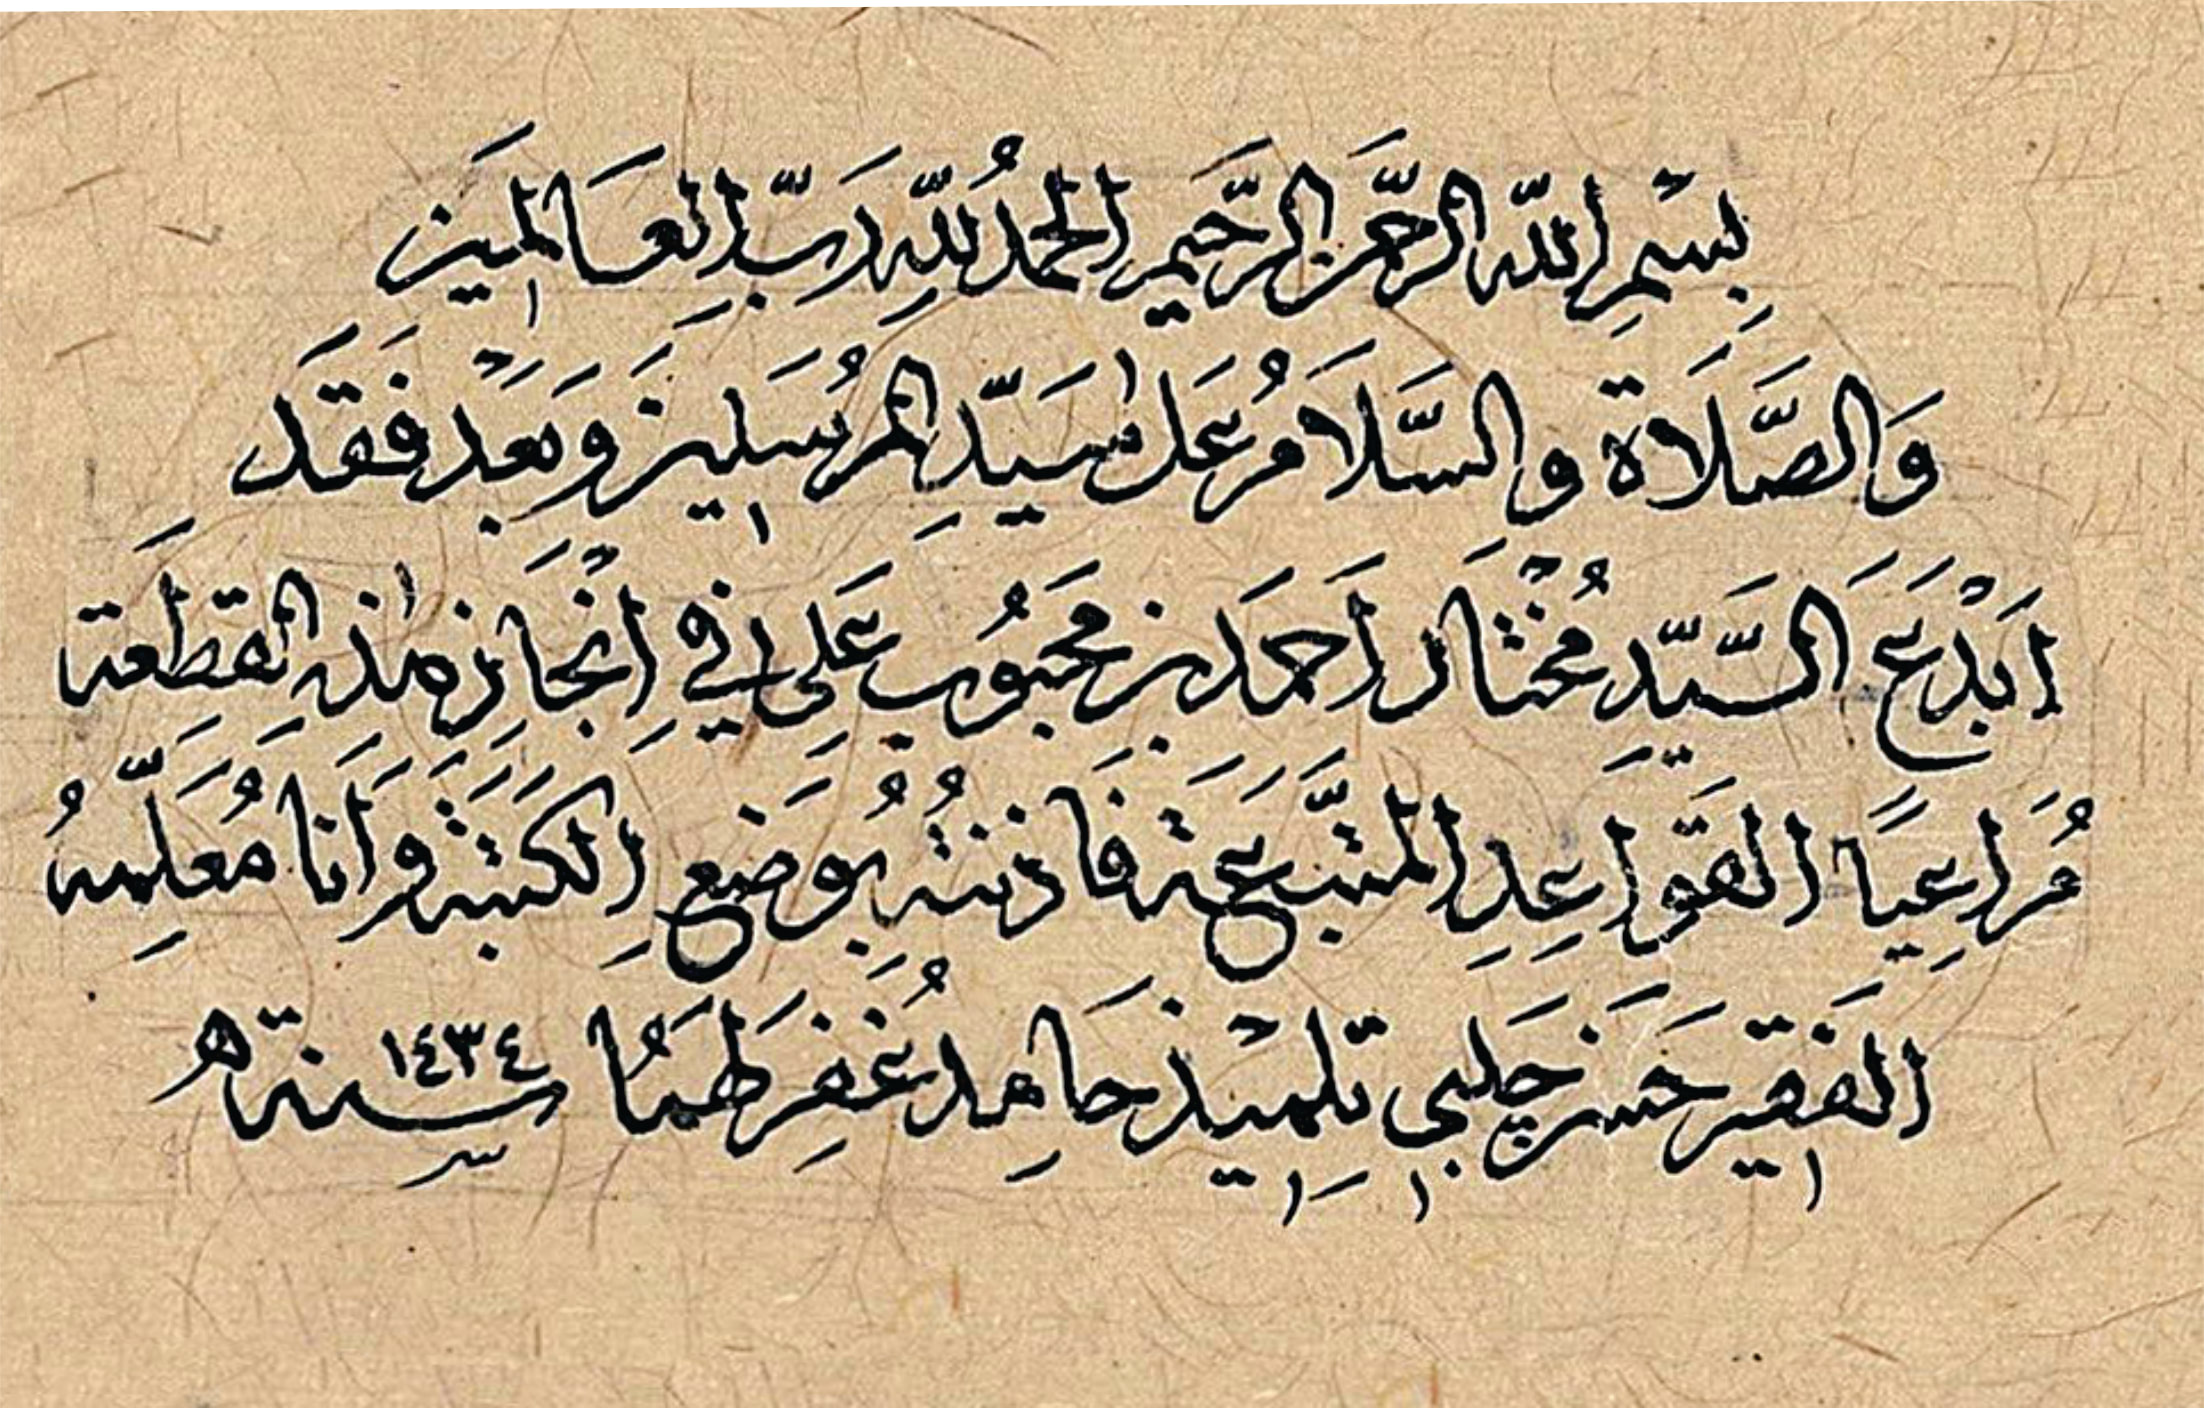 بِسْمِ اللّٰهِ الرَّحْمَنِ الرَّحِيمِ الْحَمْدُ لِلّٰهِ رَبِّ الْعَالَمِينَ
وَالصَّلَاةُ وَالسَّلَامُ عَلٰى سَيِّدِ الْمُرْسَلِينَ وَبَعْدُ فَقَدْ
اَبْدَعَ السَّيِّدِ مُخْتَار اَحْمَد بن مَحْبُوب عَلِي فِي اِنْجَازِ هٰذِهِ الْقِطْعَة
مُرَاعِيًا الْقَوَاعِدِ الْمُتَّبَعَة فَاَذِنْتُهُ بِوَضْعِ الْكَتَبَةِ وَاَنَا مُعَلِّمُهُ
الْفَقِير حَسَن چَلَبِي تِلْمِيذ حَامِد غُفِرَ لَهُمَا سنة ١٤٣٤ هـ